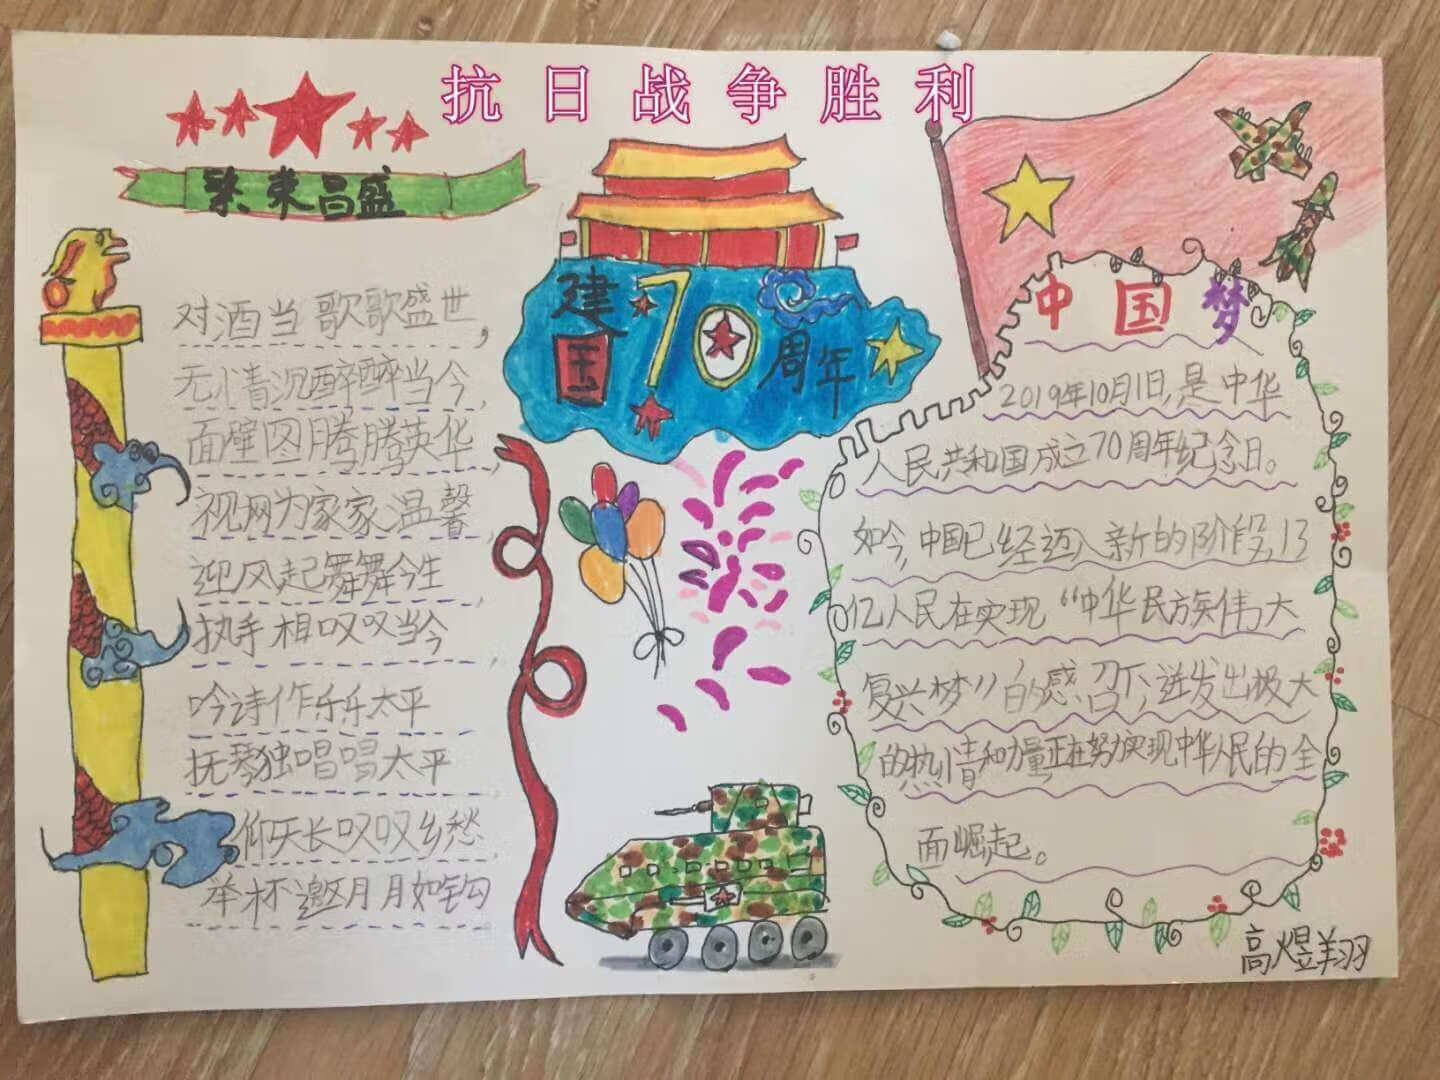 抗日战争胜利
繁荣昌盛
对酒当歌歌盛世,
无情沉醉醉当今,
面壁图腾腾英华,
视网为家家温馨,
迎风起舞舞今生,
执手相叹叹当今,
吟诗作乐乐太平
抚琴独唱唱太平
仰天长叹叹乡愁
举杯邀月月如钩
建国70周年
中国梦
2019年10月1日,是中华
人民共和国成立70周年纪念日。
如今,中国已经迈入新的阶段,13
亿人民在实现“中华民族伟大
复兴梦”的感召下,迸发出极大
的热情和力量正在努力实现中华人民的全
面崛起。
高煜翔